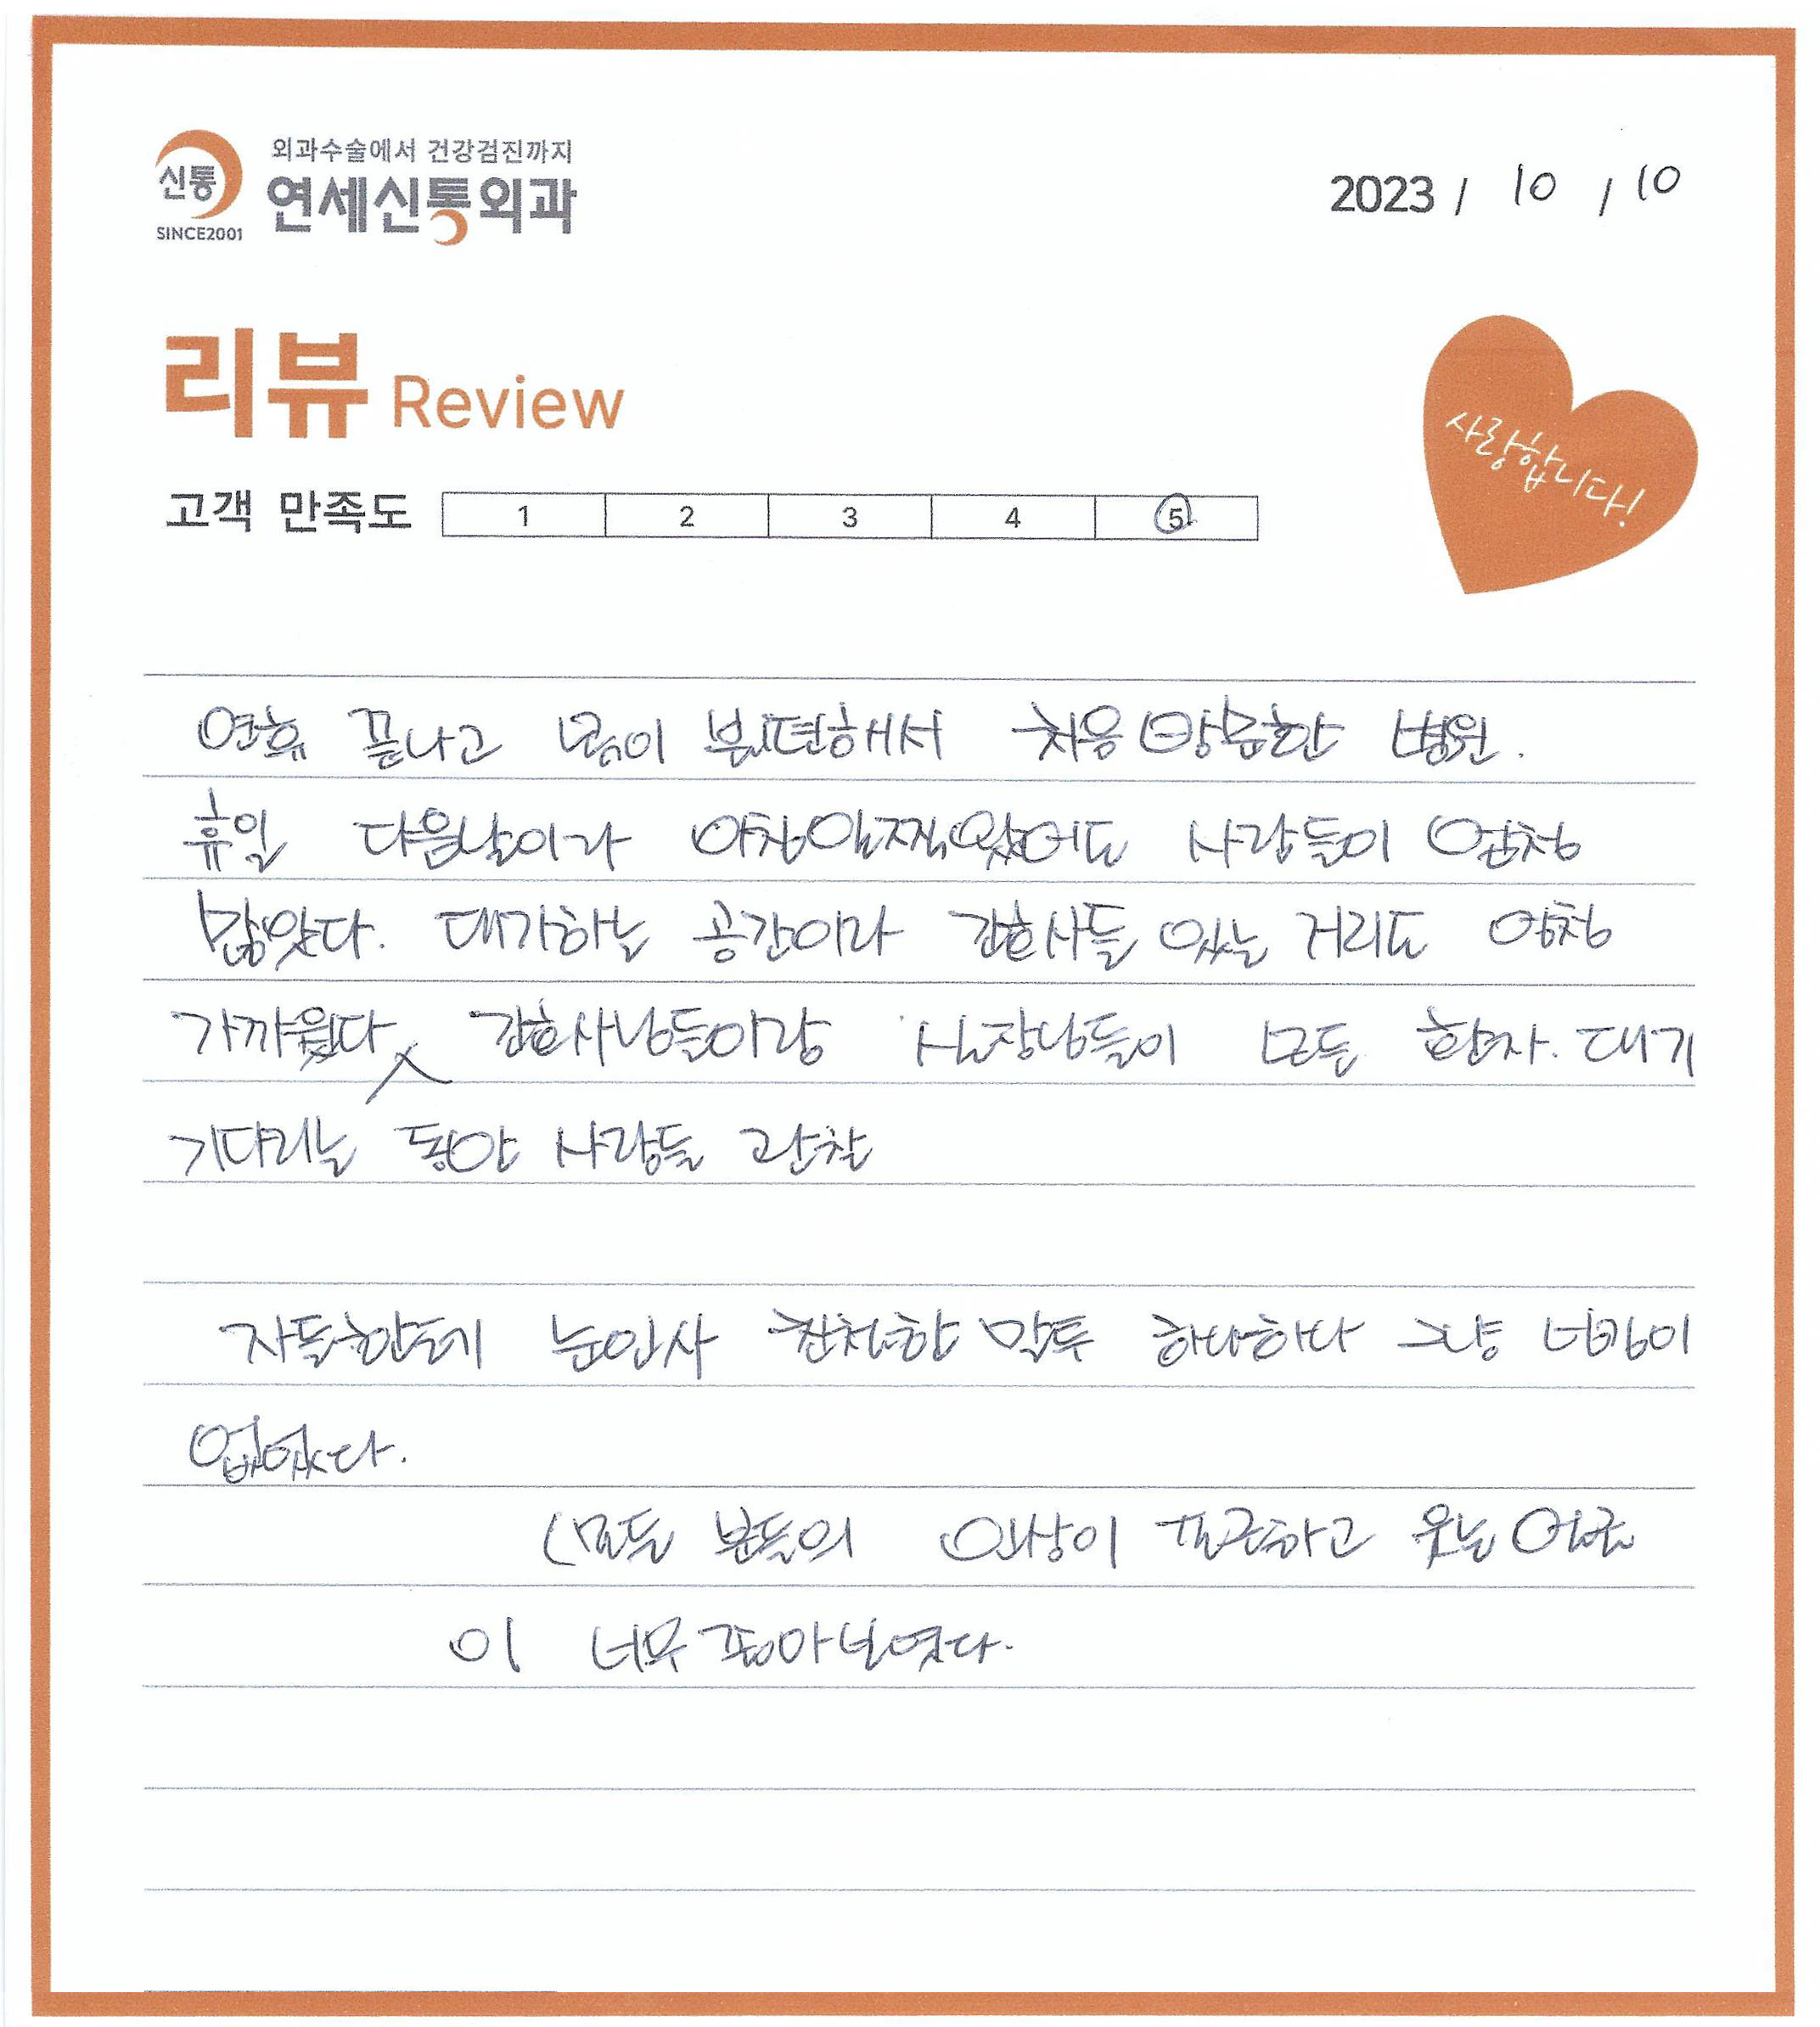 외과수술에서 건강검진까지
신통 연세신통외과
SINCE2001
2023 / 10 / 10
리뷰 Review
사랑합니다!
고객 만족도 1 2 3 4 5
연휴 끝나고 몸이 불편해서 처음 방문한 병원.
휴일 다음날이라 아침일찍왔어도 사람들이 엄청
많았다. 대기하는 공간이라 간호사들 있는 거리도 엄청
가까웠다 간호사님들이랑 실장님들이 모든 환자. 대기
기다리는 동안 사람들 관찰
자들한테 눈인사 친절한 말투 하나하나 그냥 넘김이
없었다.
(모든 분들의 인상이 포근하고 웃는 얼굴
이 너무 좋아보였다.